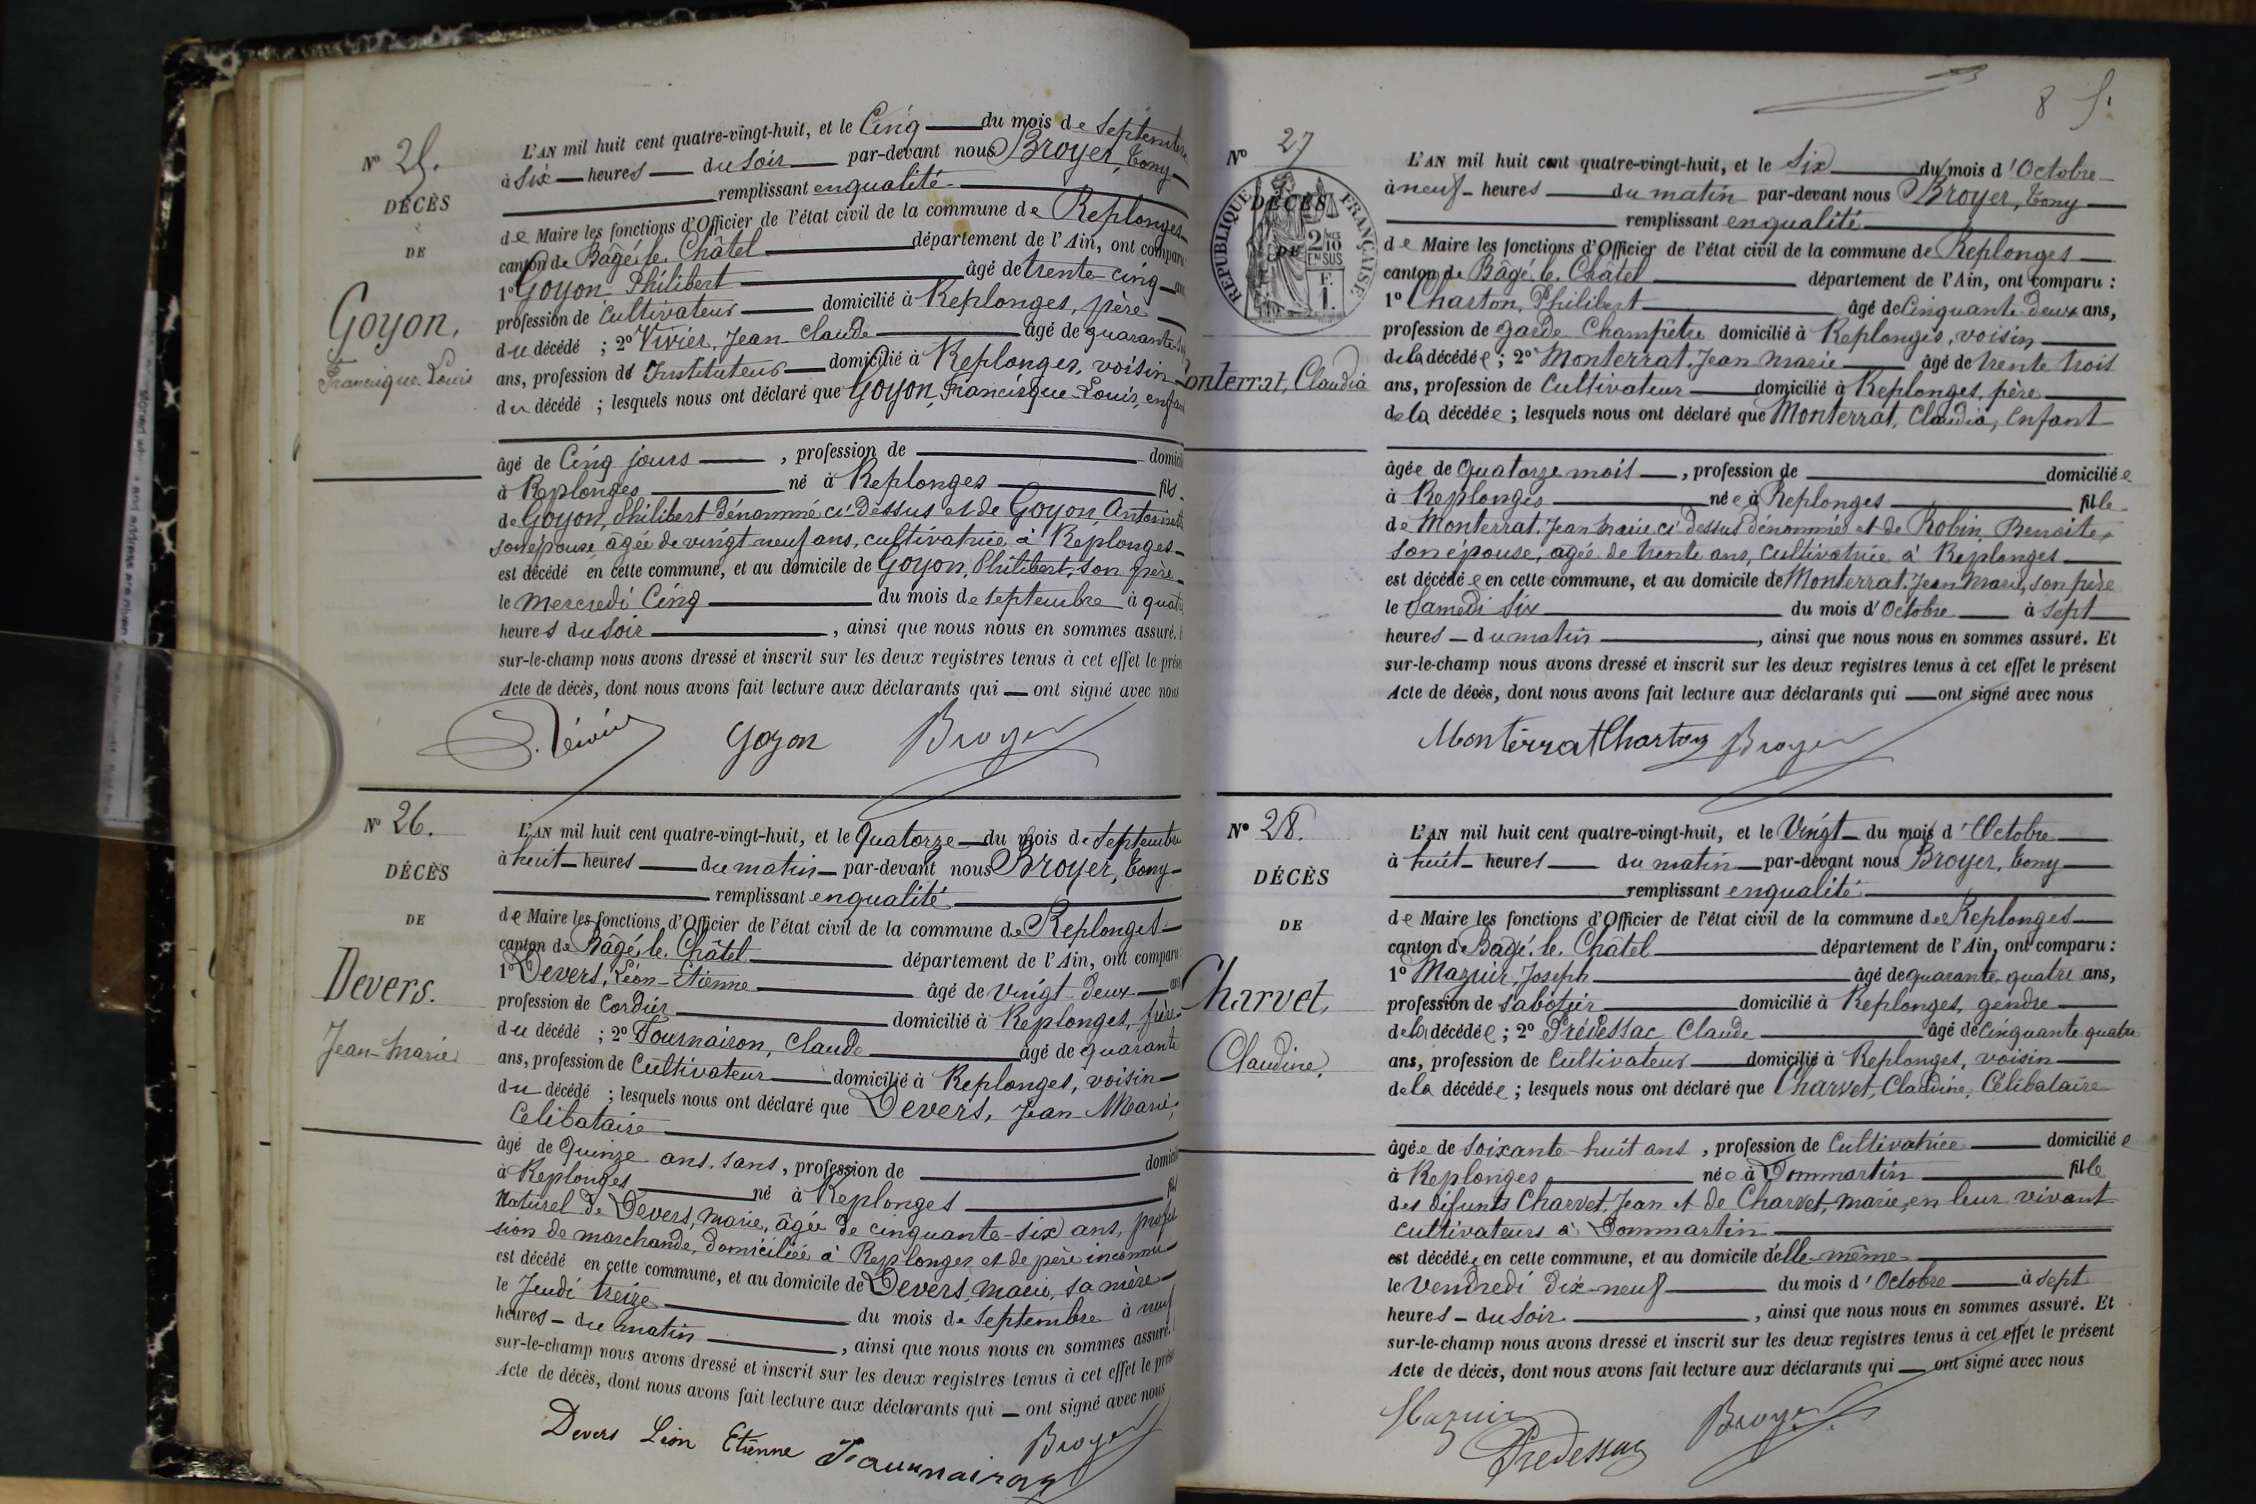 N° 25.
DÉCÈS
DE
Goyon,
Francisque Louis
L'AN mil huit cent quatre-vingt-huit, et le Cinq du mois de Septembre
à Six heures du Soir par-devant nous Broyer, Tony
remplissant en qualité
de Maire les fonctions d'Officier de l'état civil de la commune de Replonges
canton de Bâgé-le-Châtel département de l'Ain, ont comparu
1° Goyon Philibert âgé de trente cinq ans
profession de Cultivateur domicilié à Replonges, père
du décédé ; 2° Vivier, Jean Claude âgé de quarante
ans, profession de Instituteur domicilié à Replonges, voisin
du décédé ; lesquels nous ont déclaré que Goyon, Francisque Louis, enfant
âgé de Cinq jours , profession de domicil
à Replonges né à Replonges fils
de Goyon, Philibert dénommé ci-dessus et de Goyon, Antoinette
son épouse, âgée de vingt neuf ans, cultivatrice à Replonges
est décédé en cette commune, et au domicile de Goyon, Philibert, son père
le Mercredi Cinq du mois de Septembre à quatre
heures du Soir , ainsi que nous nous en sommes assuré.
sur-le-champ nous avons dressé et inscrit sur les deux registres tenus à cet effet le prése
Acte de décès, dont nous avons fait lecture aux déclarants qui ont signé avec nous
Goyon Broyer
N° 26.
DÉCÈS
DE
Devers.
Jean-Marie
L'AN mil huit cent quatre-vingt-huit, et le Quatorze du mois de Septembre
à huit heures du matin par-devant nous Broyer, Tony
remplissant en qualité
de Maire les fonctions d'Officier de l'état civil de la commune de Replonges
canton de Bâgé-le-Châtel département de l'Ain, ont comparu
1° Devers, Léon-Etienne âgé de vingt-deux ans
profession de Cordier domicilié à Replonges, frère
du décédé ; 2° Tournairon, Claude âgé de quarante
ans, profession de Cultivateur domicilié à Replonges, voisin
du décédé ; lesquels nous ont déclaré que Devers, Jean-Marie,
Celibataire
âgé de Quinze ans, sans , profession de domicil
à Replonges né à Replonges fils
Naturel de Devers, Marie, âgée de cinquante-six ans, profes
sion de marchande, domiciliée à Replonges et de père inconnu
est décédé en cette commune, et au domicile de Devers, Marie, sa mère
le Jeudi treize du mois de Septembre à neuf
heures du matin , ainsi que nous nous en sommes assuré.
sur-le-champ nous avons dressé et inscrit sur les deux registres tenus à cet effet le prése
Acte de décès, dont nous avons fait lecture aux déclarants qui ont signé avec nous
Devers Léon Etienne Tournairon Broyer
8
N° 27
DÉCÈS
DE
REPUBLIQUE FRANÇAISE
2/10 EN SUS
F. 1
onterrat, Claudia
L'AN mil huit cent quatre-vingt-huit, et le Six du mois d'Octobre
à neuf heures du matin par-devant nous Broyer, Tony
remplissant en qualité
de Maire les fonctions d'Officier de l'état civil de la commune de Replonges
canton de Bâgé-le-Châtel département de l'Ain, ont comparu :
1° Charton, Philibert âgé de Cinquante-deux ans,
profession de garde-Champêtre domicilié à Replonges, voisin
de la décédée ; 2° Monterrat, Jean Marie âgé de trente trois
ans, profession de Cultivateur domicilié à Replonges, père
de la décédée ; lesquels nous ont déclaré que Monterrat, Claudia, enfant
âgée de Quatorze mois , profession de domiciliée
à Replonges née à Replonges fille
de Monterrat, Jean Marie ci-dessus dénommé et de Robin, Benoite,
son épouse, agée de trente ans, Cultivatrice à Replonges
est décédée en cette commune, et au domicile de Monterrat, Jean Marie, son père
le Samedi Six du mois d'Octobre à sept
heures du matin , ainsi que nous nous en sommes assuré. Et
sur-le-champ nous avons dressé et inscrit sur les deux registres tenus à cet effet le présent
Acte de décès, dont nous avons fait lecture aux déclarants qui ont signé avec nous
Monterrat Charton Broyer
N° 28.
DÉCÈS
DE
Charvet,
Claudine,
L'AN mil huit cent quatre-vingt-huit, et le Vingt du mois d'Octobre
à huit heures du matin par-devant nous Broyer, Tony
remplissant en qualité
de Maire les fonctions d'Officier de l'état civil de la commune de Replonges
canton de Bagé-le-Châtel département de l'Ain, ont comparu :
1° Mazuir, Joseph âgé de quarante-quatre ans,
profession de Sabotier domicilié à Replonges, gendre
de la décédée ; 2° Prédessac Claude âgé de Cinquante-quatre
ans, profession de Cultivateur domicilié à Replonges, voisin
de la décédée ; lesquels nous ont déclaré que Charvet, Claudine, Célibataire
âgée de soixante-huit ans , profession de Cultivatrice domiciliée
à Replonges née à Dommartin fille
des défunts Charvet, Jean et de Charvet, Marie, en leur vivant
cultivateurs à Dommartin
est décédée en cette commune, et au domicile d'elle-même
le Vendredi dix-neuf du mois d'Octobre à sept
heures du soir , ainsi que nous nous en sommes assuré. Et
sur-le-champ nous avons dressé et inscrit sur les deux registres tenus à cet effet le présent
Acte de décès, dont nous avons fait lecture aux déclarants qui ont signé avec nous
Mazuir Broyer
Predessac